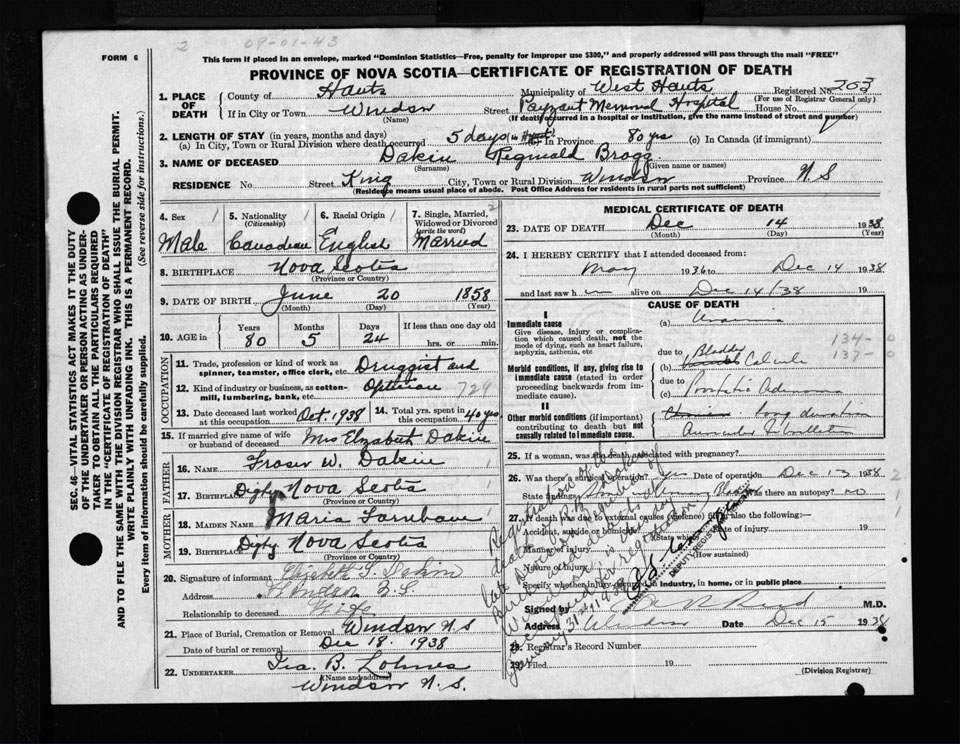 2 09-01-43
FORM 6
This form if placed in an envelope, marked "Dominion Statistics—Free, penalty for improper use $300," and properly addressed will pass through the mail "FREE"
PROVINCE OF NOVA SCOTIA—CERTIFICATE OF REGISTRATION OF DEATH
SEC. 46—VITAL STATISTICS ACT MAKES IT THE DUTY
OF THE UNDERTAKER OR PERSON ACTING AS UNDER-
TAKER TO OBTAIN ALL THE PARTICULARS REQUIRED
IN THE "CERTIFICATE OF REGISTRATION OF DEATH"
AND TO FILE THE SAME WITH THE DIVISION REGISTRAR WHO SHALL ISSUE THE BURIAL PERMIT.
WRITE PLAINLY WITH UNFADING INK. THIS IS A PERMANENT RECORD.
Every item of information should be carefully supplied. (See reverse side for instructions.)
1. PLACE OF DEATH
County of Hants Municipality of West Hants Registered No. 203
(For use of Registrar General only)
If in City or Town Windsor Street Payzant Memorial Hospital House No.
(Name) (If death occurred in a hospital or institution, give the name instead of street and number)
2. LENGTH OF STAY (in years, months and days)
(a) In City, Town or Rural Division where death occurred 5 days (b) In Province 80 yrs (c) In Canada (if immigrant)
3. NAME OF DECEASED Dakin Reginald Bragg
(Surname) (Given name or names)
RESIDENCE No Street King City, Town or Rural Division Windsor Province N.S
(Residence means usual place of abode. Post Office Address for residents in rural parts not sufficient)
4. Sex 5. Nationality (Citizenship) 6. Racial Origin 7. Single, Married, Widowed or Divorced (write the word)
Male Canadian English Married
8. BIRTHPLACE Nova Scotia
(Province or Country)
9. DATE OF BIRTH June 20 1858
(Month) (Day) (Year)
10. AGE in Years Months Days If less than one day
80 5 24 hrs. or min.
OCCUPATION
11. Trade, profession or kind of work as spinner, teamster, office clerk, etc. Druggist and
12. Kind of industry or business, as cotton-mill, lumbering, bank, etc. Optician 729
13. Date deceased last worked at this occupation Oct 1938 14. Total yrs. spent in this occupation 40 yrs.
15. If married give name of wife or husband of deceased Mrs Elizabeth Dakin
FATHER
16. NAME Fraser W. Dakin
17. BIRTHPLACE Digby Nova Scotia
(Province or Country)
MOTHER
18. MAIDEN NAME Maria
19. BIRTHPLACE Digby Nova Scotia
(Province or Country)
20. Signature of informant Elizabeth S. Dakin
Address Windsor N.S.
Relationship to deceased Wife
21. Place of Burial, Cremation or Removal Windsor N S
Date of burial or removal Dec 18. 1938
22. UNDERTAKER Ira. B. Lohnes
(Name and address)
Windsor N. S.
MEDICAL CERTIFICATE OF DEATH
23. DATE OF DEATH Dec 14 1938
(Month) (Day) (Year)
24. I HEREBY CERTIFY that I attended deceased from:
May 1936 to Dec 14 1938
and last saw him alive on Dec 14/38 19
CAUSE OF DEATH
I
Immediate cause
Give disease, injury or complication which caused death, not the mode of dying, such as heart failure, asphyxia, asthenia, etc
(a) Uraemia
Morbid conditions, if any, giving rise to immediate cause (stated in order proceeding backwards from immediate cause).
due to
(b) Bladder Calculi 134-0
137-0
due to
(c) Prostatic Adenoma
II
Other morbid conditions (if important) contributing to death but not causally related to immediate cause.
long duration
Auricular Fibrillation
25. If a woman, was the death associated with pregnancy?
26. Was there a surgical operation? yes Date of operation Dec 13 1938
State findings Was there an autopsy? no
27. If death was due to external causes (violence) fill in also the following:
Accident, suicide or homicide Date of injury 19
(State which)
Manner of injury
(How sustained)
Nature of injury
Specify whether injury occurred in industry, in home, or in public place
DEPUTY REGISTRAR
Signed by Reid M.D.
Address Windsor Date Dec 15 1938
28. Registrar's Record Number
29. Filed 19
(Division Registrar)